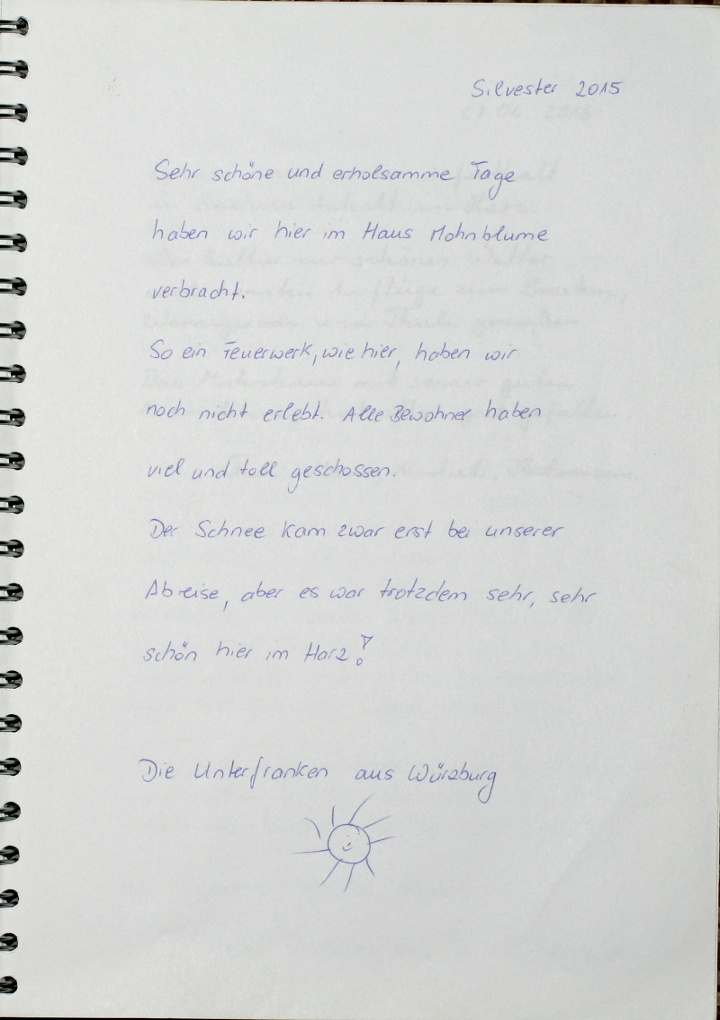 Silvester 2015
Sehr schöne und erholsamme Tage
haben wir hier im Haus Mohnblume
verbracht.
So ein Feuerwerk, wie hier, haben wir
noch nicht erlebt. Alle Bewohner haben
viel und toll geschossen.
Der Schnee kam zwar erst bei unserer
Abreise, aber es war trotzdem sehr, sehr
schön hier im Harz!
Die Unterfranken aus Würzburg